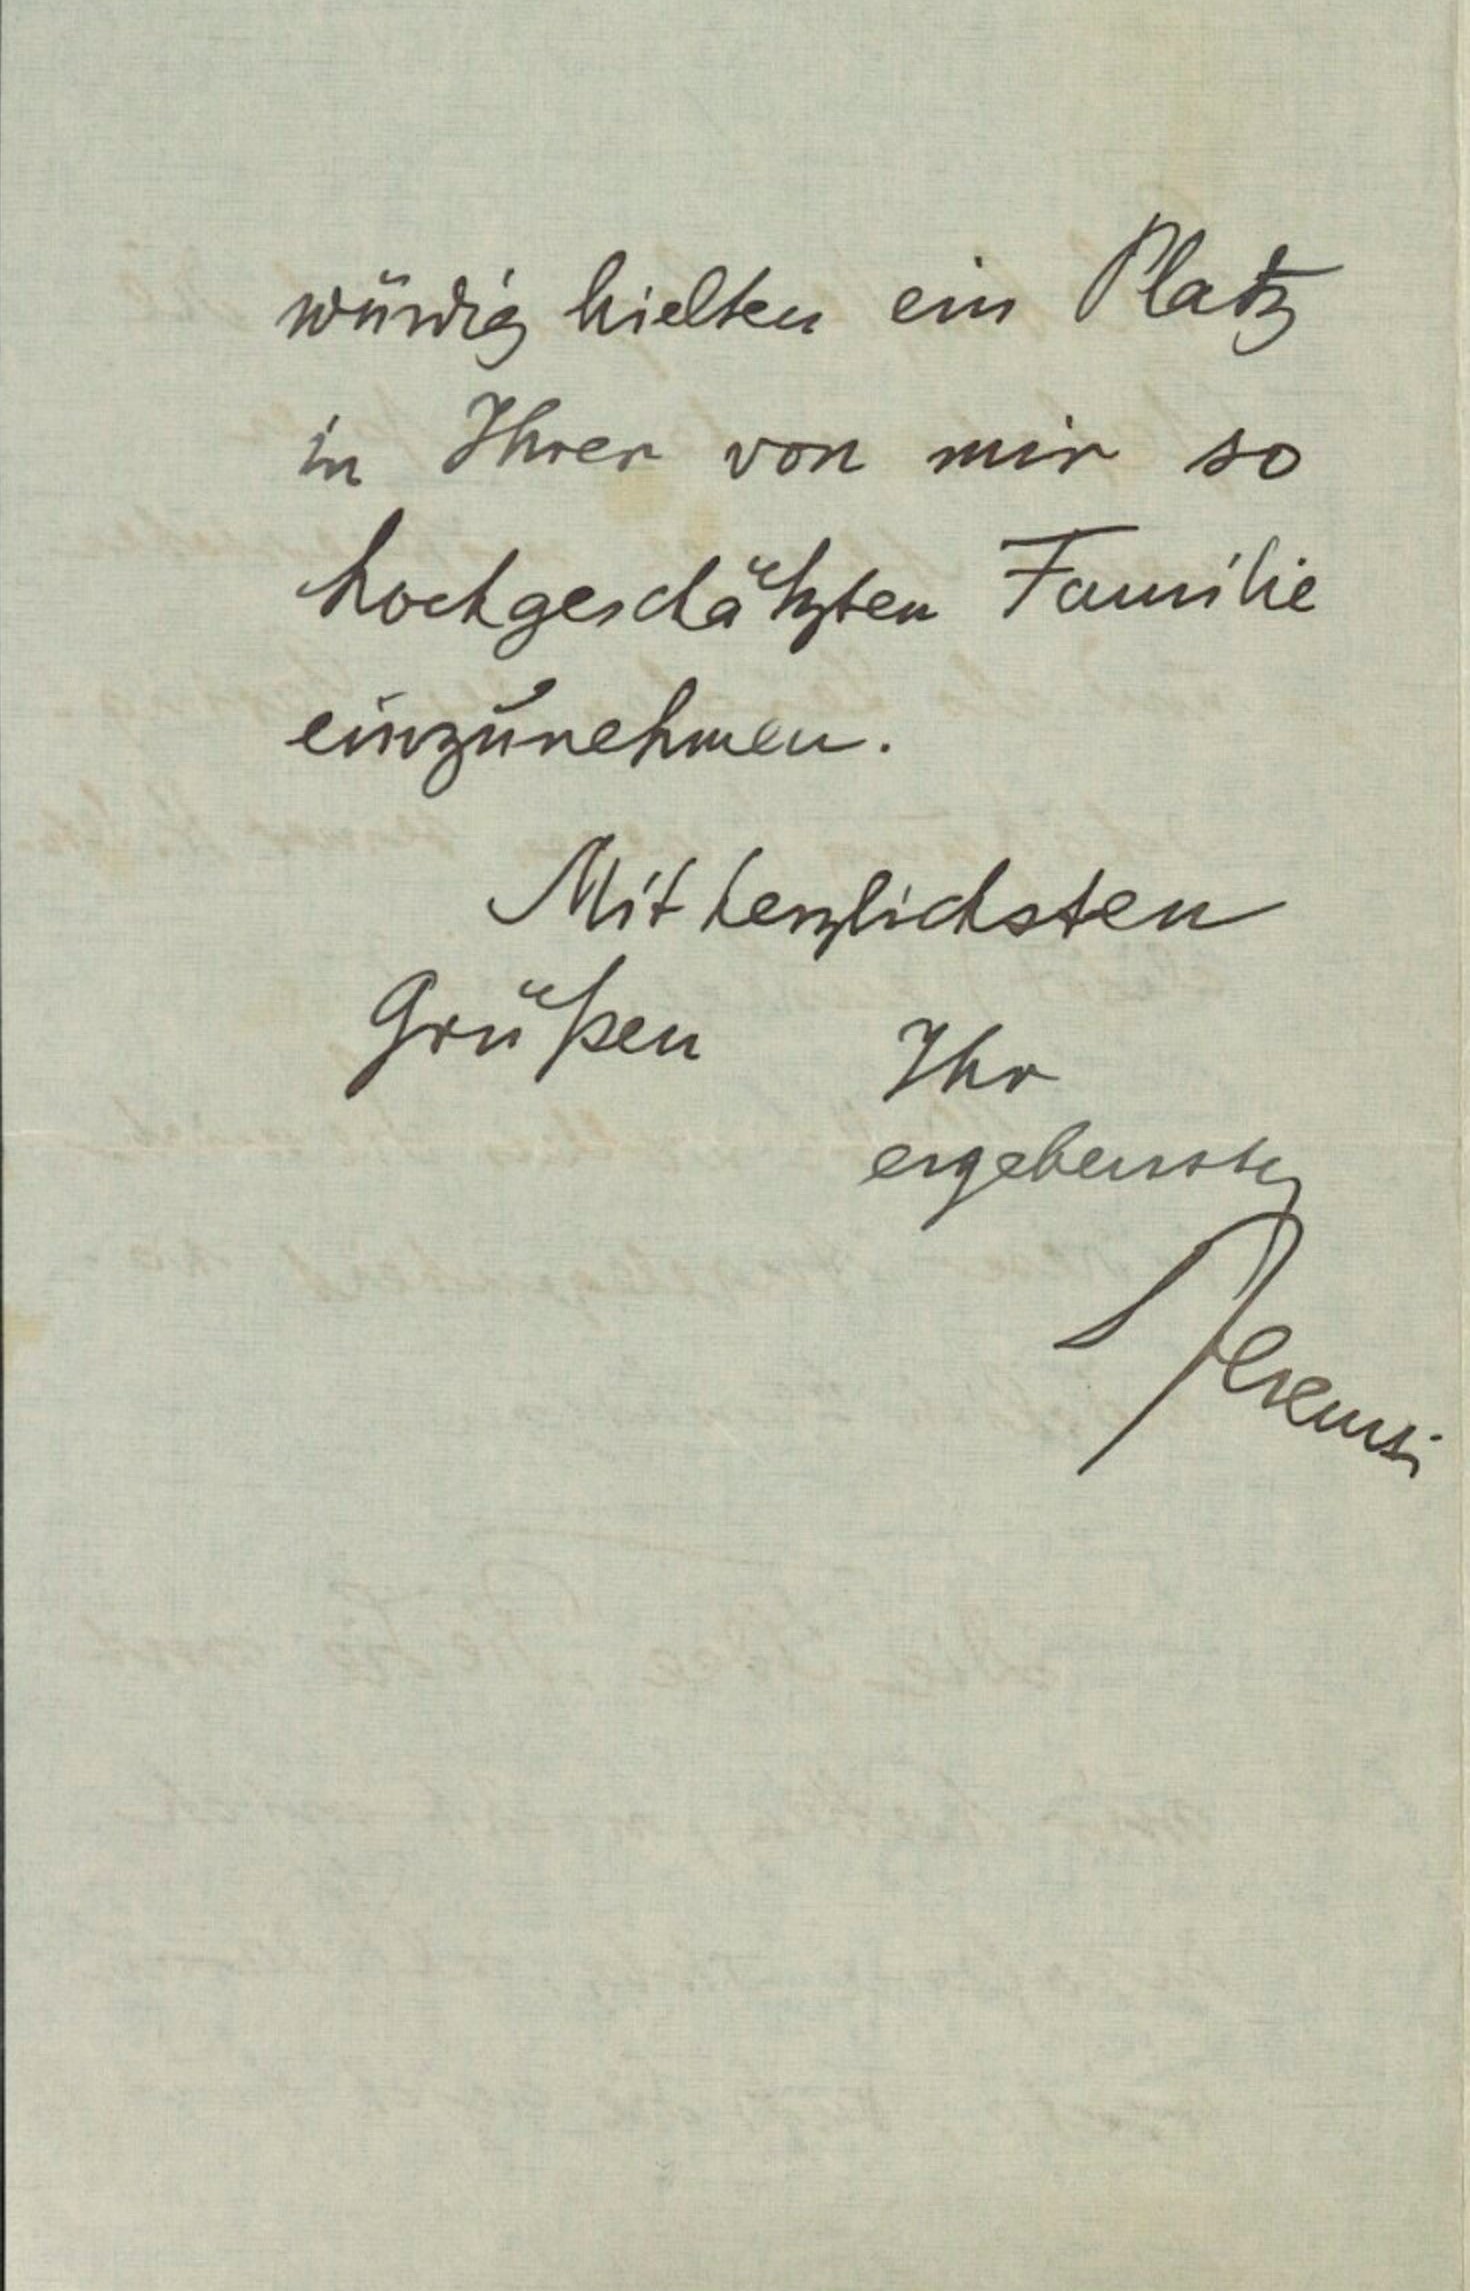 würdig hielten ein Platz
in Ihrer von mir so
hochgeschätzten Familie
einzunehmen.
Mit herzlichsten
Grüßen Ihr
ergebenster
Ferenczi